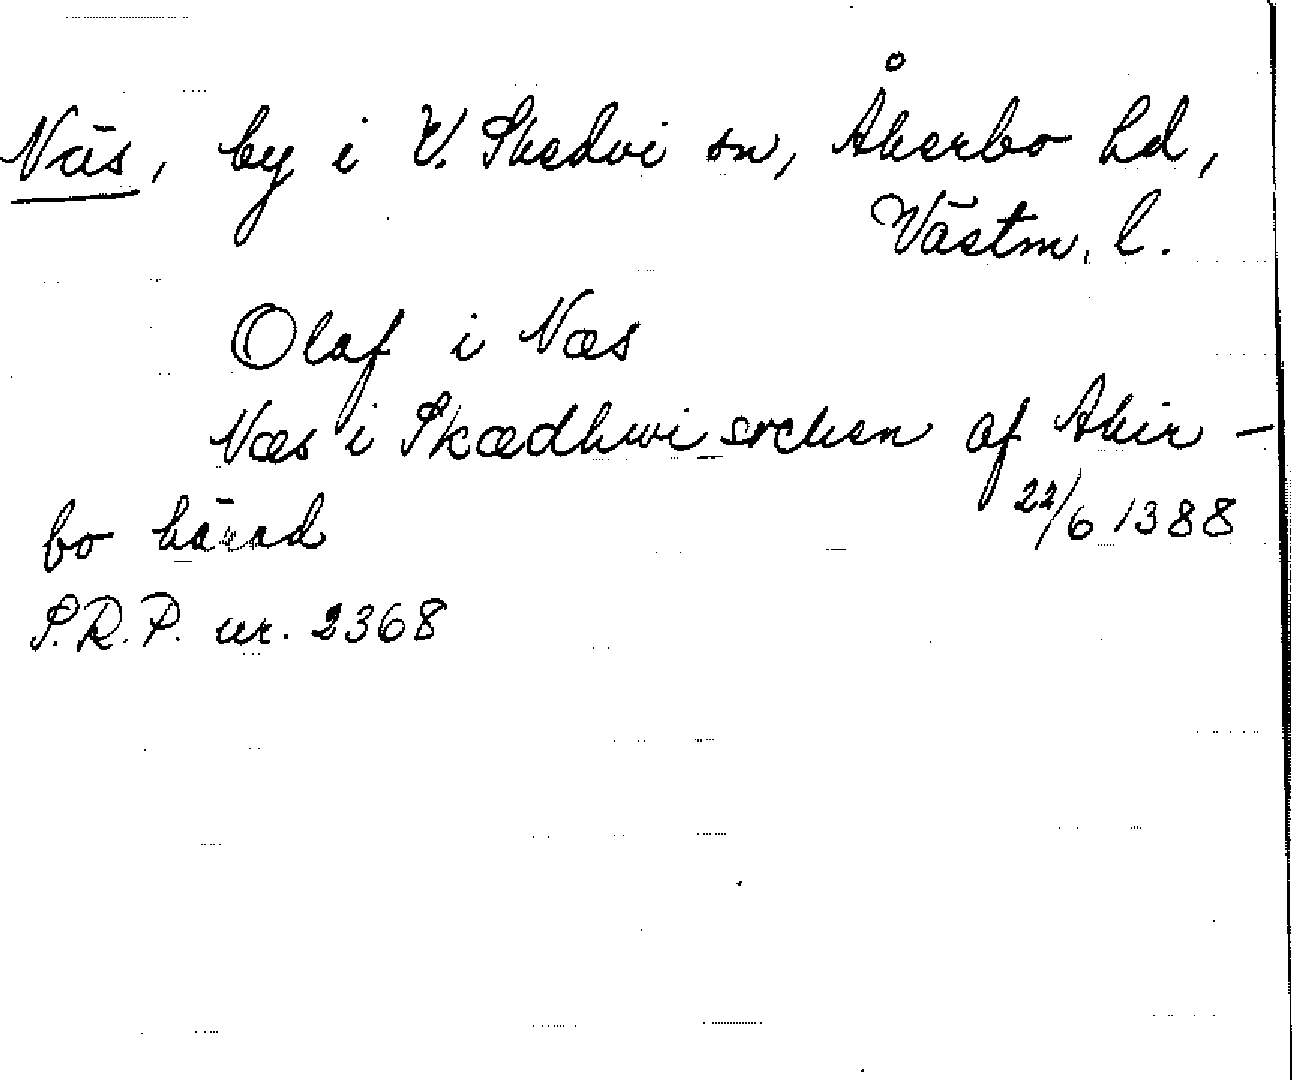 Näs, by i V. Skedvi sn, Åkerbo hd,
Västm. l.
Olaf i Næs
Næs i Skædhwi sochen af Akir-
bo härad 22/6 1388
S.R.P. nr. 2368